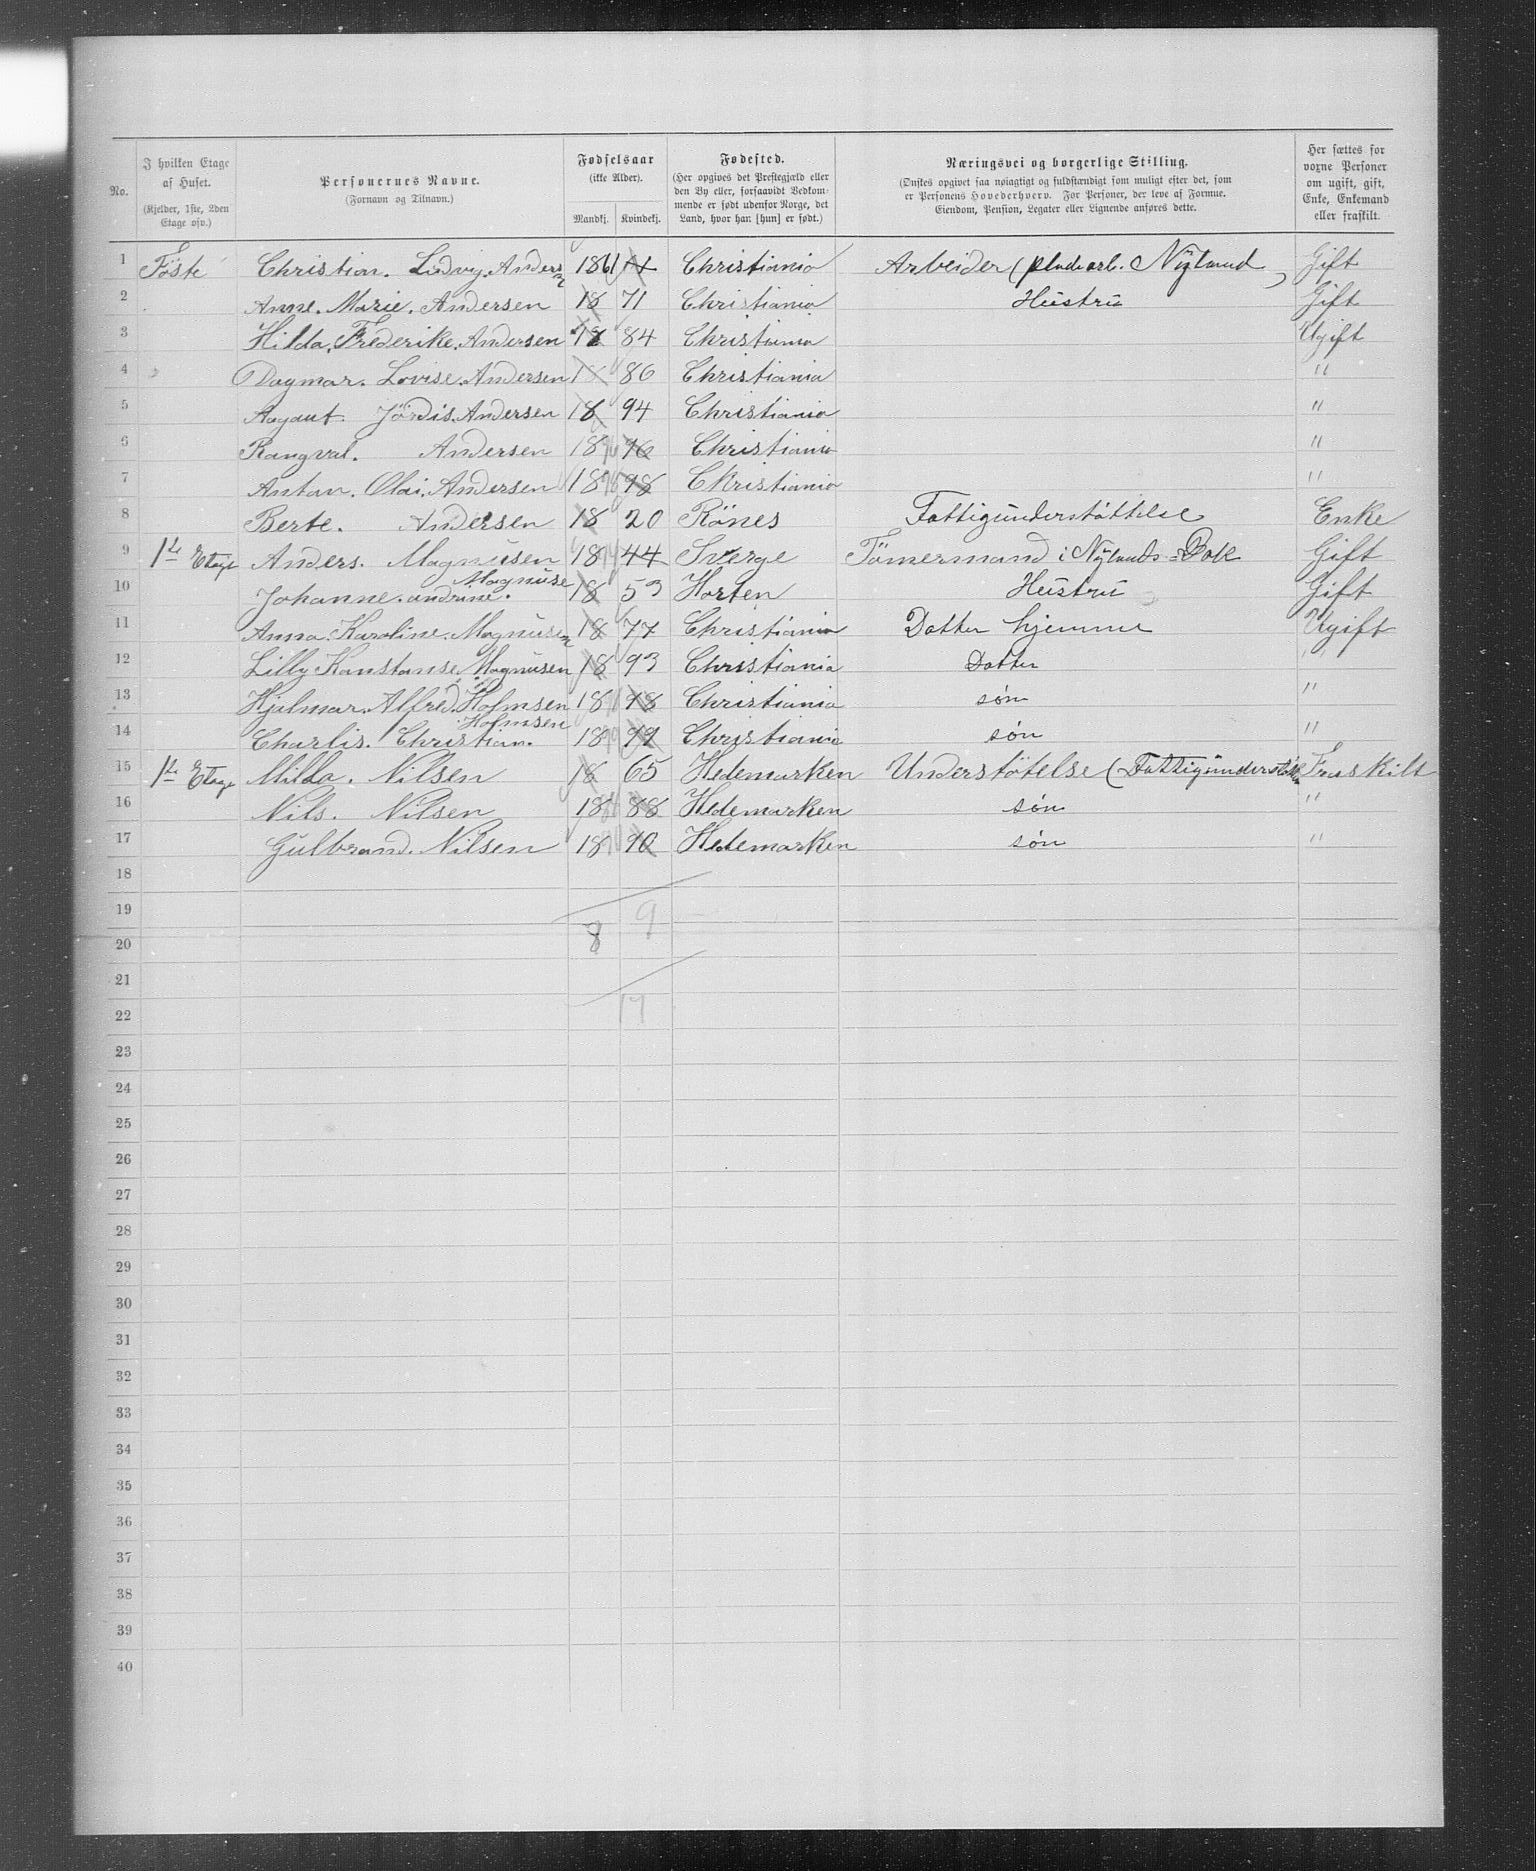 No.
I hvilken Etage af Huset. (Kjelder, 1ste, 2den Etage osv.)
Personernes Navne. (Fornavn og Tilnavn.)
Fødselsaar (ikke Alder). Mandkj. Kvindekj.
Fødested. (Her opgives det Præstegjæld eller den By eller, forsaavidt Vedkommende er født udenfor Norge, det Land, hvor han [hun] er født.)
Næringsvei og borgerlige Stilling. (Ønskes opgivet saa nøiagtigt og fuldstændigt som muligt efter det, som er Personens Hovederhverv. For Personer, der leve af Formue, Eiendom, Pension, Legater eller Lignende anføres dette.
Her sættes for voxne Personer om ugift, gift, Enke, Enkemand eller fraskilt.
1 Föste Christian. Ludvig. Andersen 1861 Christiania Arbeider (pladearb. Nyland) Gift
2 Anne. Marie. Andersen 18 71 Christiania Hustru Gift
3 Hilda. Frederike. Andersen 18 84 Christiania Ugift
4 Dagmar. Lovise. Andersen 1 86 Christiania "
5 Aagaut. Jördis. Andersen 18 94 Christiania "
6 Rangval. Andersen 18 96 Christiania "
7 Anton. Olai. Andersen 18 98 Christiania "
8 Berte. Andersen 18 20 Rönes Fattigunderstøttelse Enke
9 1ste Etage Anders. Magnusen 18 44 Sverge Tömermand i Nylands Gift
10 Johanne. andrine. Magnuse 18 53 Horten Hustru Gift
11 Anna. Karoline. Magnusen 18 77 Christiania Datter hjemme Ugift
12 Lilly Konstanse Magnusen 18 93 Christiania Datter "
13 Hjalmar. Alfred. Holmsen 18 98 Christiania søn "
14 Charlis. Christian. Holmsen 18 99 Christiania søn "
15 1ste Etage Milda. Nilsen 18 65 Hedemarken Understötelse (Fattigunderstøt Fraskilt
16 Nils. Nilsen 18 88 Hedemarken søn "
17 Gulbrand. Nilsen 18 90 Hedemarken søn "
18
19 8 9
20
21
22 17
23
24
25
26
27
28
29
30
31
32
33
34
35
36
37
38
39
40